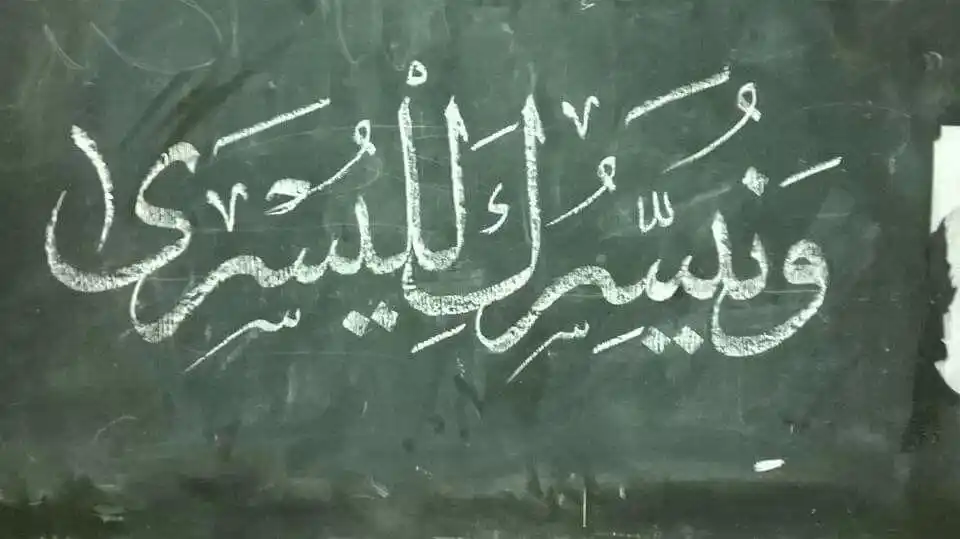 وَنُيَسِّرُكَ لِلْيُسْرَى